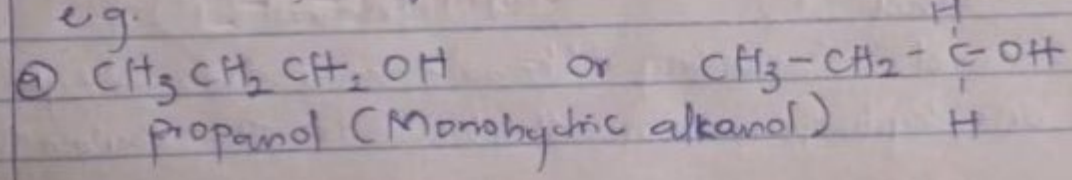 eg.
ⓐ CH₃ CH₂ CH₂ OH or CH₃-CH₂-C-OH
H
propanol (Monohydric alkanol) H